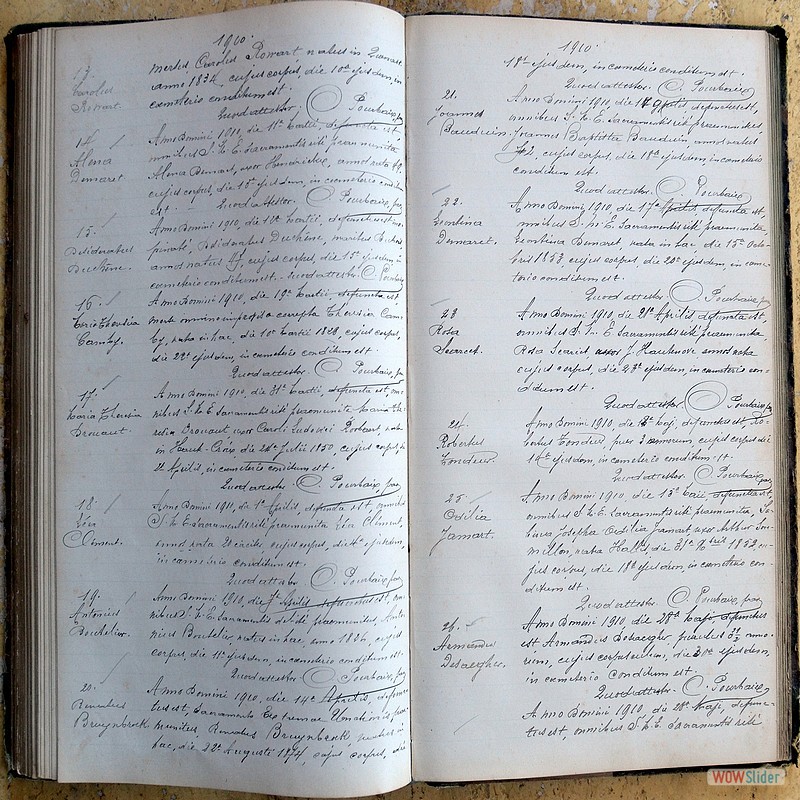 1910.
13.
Carolus
Rowart.
meritus Carolus Rowart natus in Quenast
anno 1834, cujus corpus, die 10a ejusdem, in
cœmeterio conditum est.
Quod attestor. C. Pourbaix, par
14.
Alena
Demaret
Anno Domini 1910, die 11a Martii, defuncta est
omnibus S. M. E. Sacramentis rite præmunita
Alena Demaret, uxor Hendrickx, annos nata 49,
cujus corpus, die 15a ejusdem, in cœmeterio conditum
est. Quod attestor. C. Pourbaix, par
15.
Desideratus
Duchêne.
Anno Domini 1910, die 12a Martii, defunctus est
Desideratus Duchêne, maritus
annos natus cujus corpus, die 15a ejusdem, in
cœmeterio conditum est. Quod attestor. C. Pourbaix
16.
Maria Theresia
Camby.
Anno Domini 1910, die 19a Martii, defuncta est
morte omnino improviso correpta Theresia Cam-
by, nata in hac, die 10a Martii cujus corpus,
die 22a ejusdem, in cœmeterio conditum est.
Quod attestor. C. Pourbaix, par
17.
Maria Theresia
Drouaut.
Anno Domini 1910, die 31a Martii, defuncta est, om-
nibus S. M. E. Sacramentis rite præmunita Maria The-
resia Drouaut uxor Caroli Ludovici nata
in Haut-Croix, die 26a Julii 1850, cujus corpus,
2a Aprilis, in cœmeterio conditum est.
Quod attestor. C. Pourbaix, par
18.
Léa
Clément.
Anno Domini 1910, die 1a Aprilis, defuncta est, omnibus
S. M. E. Sacramentis rite præmunita Léa Clément,
annos nata cujus corpus, die 4a ejusdem,
in cœmeterio conditum est.
Quod attestor. C. Pourbaix, par
19.
Antonius
Boutelier.
Anno Domini 1910, die Aprilis, defunctus est, om-
nibus S. M. E. Sacramentis præmunitus, Anto-
nius Boutelier, natus in hac, anno 1826, cujus
corpus, die 11a ejusdem, in cœmeterio conditum est.
Quod attestor. C. Pourbaix, par
20.
Romulus
Bruynbroek
Anno Domini 1910, die 14a Aprilis, defunc-
tus est, Sacramento Extremae Unctionis præ-
munitus, Romulus Bruynbroek natus in
hac, die 22a Augusti 1874, cujus corpus, die
1910.
18a ejusdem, in cœmeterio conditum est.
Quod attestor. C. Pourbaix
21.
Joannes
Bauduin.
Anno Domini 1910, die defunctus est,
omnibus S. M. E. Sacramentis rite præmunitus,
Joannes Baptista Bauduin annos natus
72, cujus corpus, die 18a ejusdem in cœmeterio
conditum est.
Quod attestor. C. Pourbaix
22.
Leontina
Demaret.
Anno Domini 1910, die 17a Aprilis, defuncta est,
omnibus S. M. E. Sacramentis rite præmunita
Leontina Demaret, nata in hac, die 15a Octo-
bris 1853, cujus corpus, die 20a ejusdem, in cœme-
terio conditum est.
Quod attestor. C. Pourbaix, par
23
Rosa
Searcet.
Anno Domini 1910, die 21a Aprilis defuncta est,
omnibus S. M. E. Sacramentis rite præmunita,
Rosa Searcet uxor J. annos nata
cujus corpus, die 23a ejusdem, in cœmeterio con-
ditum est.
Quod attestor. C. Pourbaix, par
24.
Robertus
Tondeur.
Anno Domini 1910, die Maji, defunctus est, Ro-
bertus Tondeur, puer 3 annorum, cujus corpus die
14a ejusdem, in cœmeterio conditum est.
Quod attestor. C. Pourbaix, par
25.
Odilia
Jamart.
Anno Domini 1910, die 15a Maii, defuncta est,
omnibus S. M. E. Sacramentis rite præmunita,
Josepha Odilia Jamart, uxor Arthur
nata Hall, die 31a 1852, cu-
jus corpus, die 18a ejusdem, in cœmeterio con-
ditum est.
Quod attestor. C. Pourbaix, par
26.
Armandus
Desaegher.
Anno Domini 1910, die 28a Maji, defunctus
est Armandus Desaegher puerulus anno-
rum, cujus corpusculum, die 30a ejusdem,
in cœmeterio conditum est.
Quod attestor. C. Pourbaix,
Anno Domini 1910, die 28a Maji, defunc-
tus est, omnibus S. M. E. Sacramentis rite
WOWSlider